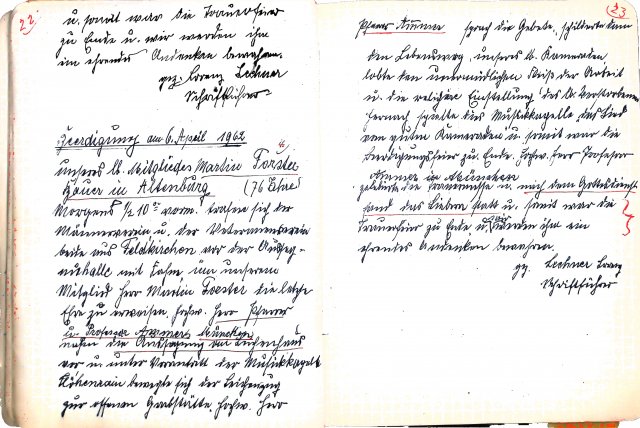 22
u. somit war die Trauerfeier
zu Ende u. wir werden ihm
ein ehrendes Andenken bewahren.
gez. Lorenz Lechner
Schriftführer
Beerdigung am 6. April 1962
unseres lb. Mitgliedes Martin Forster
Bauer in Altenburg (76 Jahre)
Morgens ½ 10 vorm. trafen sich der
Männerverein u. der Veteranenverein
beide aus Feldkirchen vor der Ausseg-
nushalle mit Fahne um unserem
Mitglied Herr Martin Forster die letzte
Ehre zu erweisen. Hochw. Herr Pfarrer
u. Professor Ammer München
nahm die Aussegnung im Leichenhaus
vor u. unter Vorantritt der Musikkapelle
Höhenrain bewegte sich der Leichenzug
zur offenen Grabstätte. Hochw. Herr
23
Pfarrer Ammer sprach die Gebete, schilderte dann
den Lebensweg, unseres lb. Kameraden,
lobte den unermüdlichen Fleiß der Arbeit
u. die religiöse Einstellung des lb. Verstorbenen
Hernach spielte die Musikkapelle das Lied
vom guten Kameraden u. somit war die
Beerdigungsfeier zu Ende. Hochw. Herr Professor
Ammer in München
zelebrierte die Trauermesse u. nach dem Gottesdienst
fand das Libera statt u. somit war die
Trauerfeier zu Ende u. wir werden ihm ein
ehrendes Andenken bewahren.
gez. Lechner Lorenz
Schriftführer